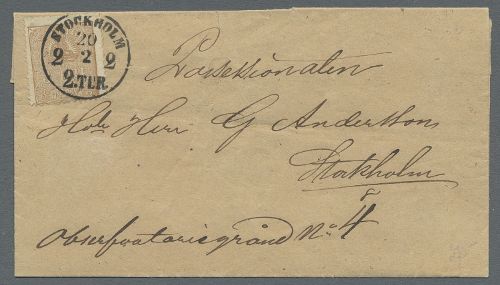 STOCKHOLM
20
2 2 2
2.TUR.
Herr G Anderssons
Stockholm
Observatoriegränd No 4